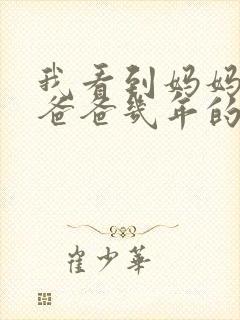 我看到妈妈
爸爸几年的
崔少华